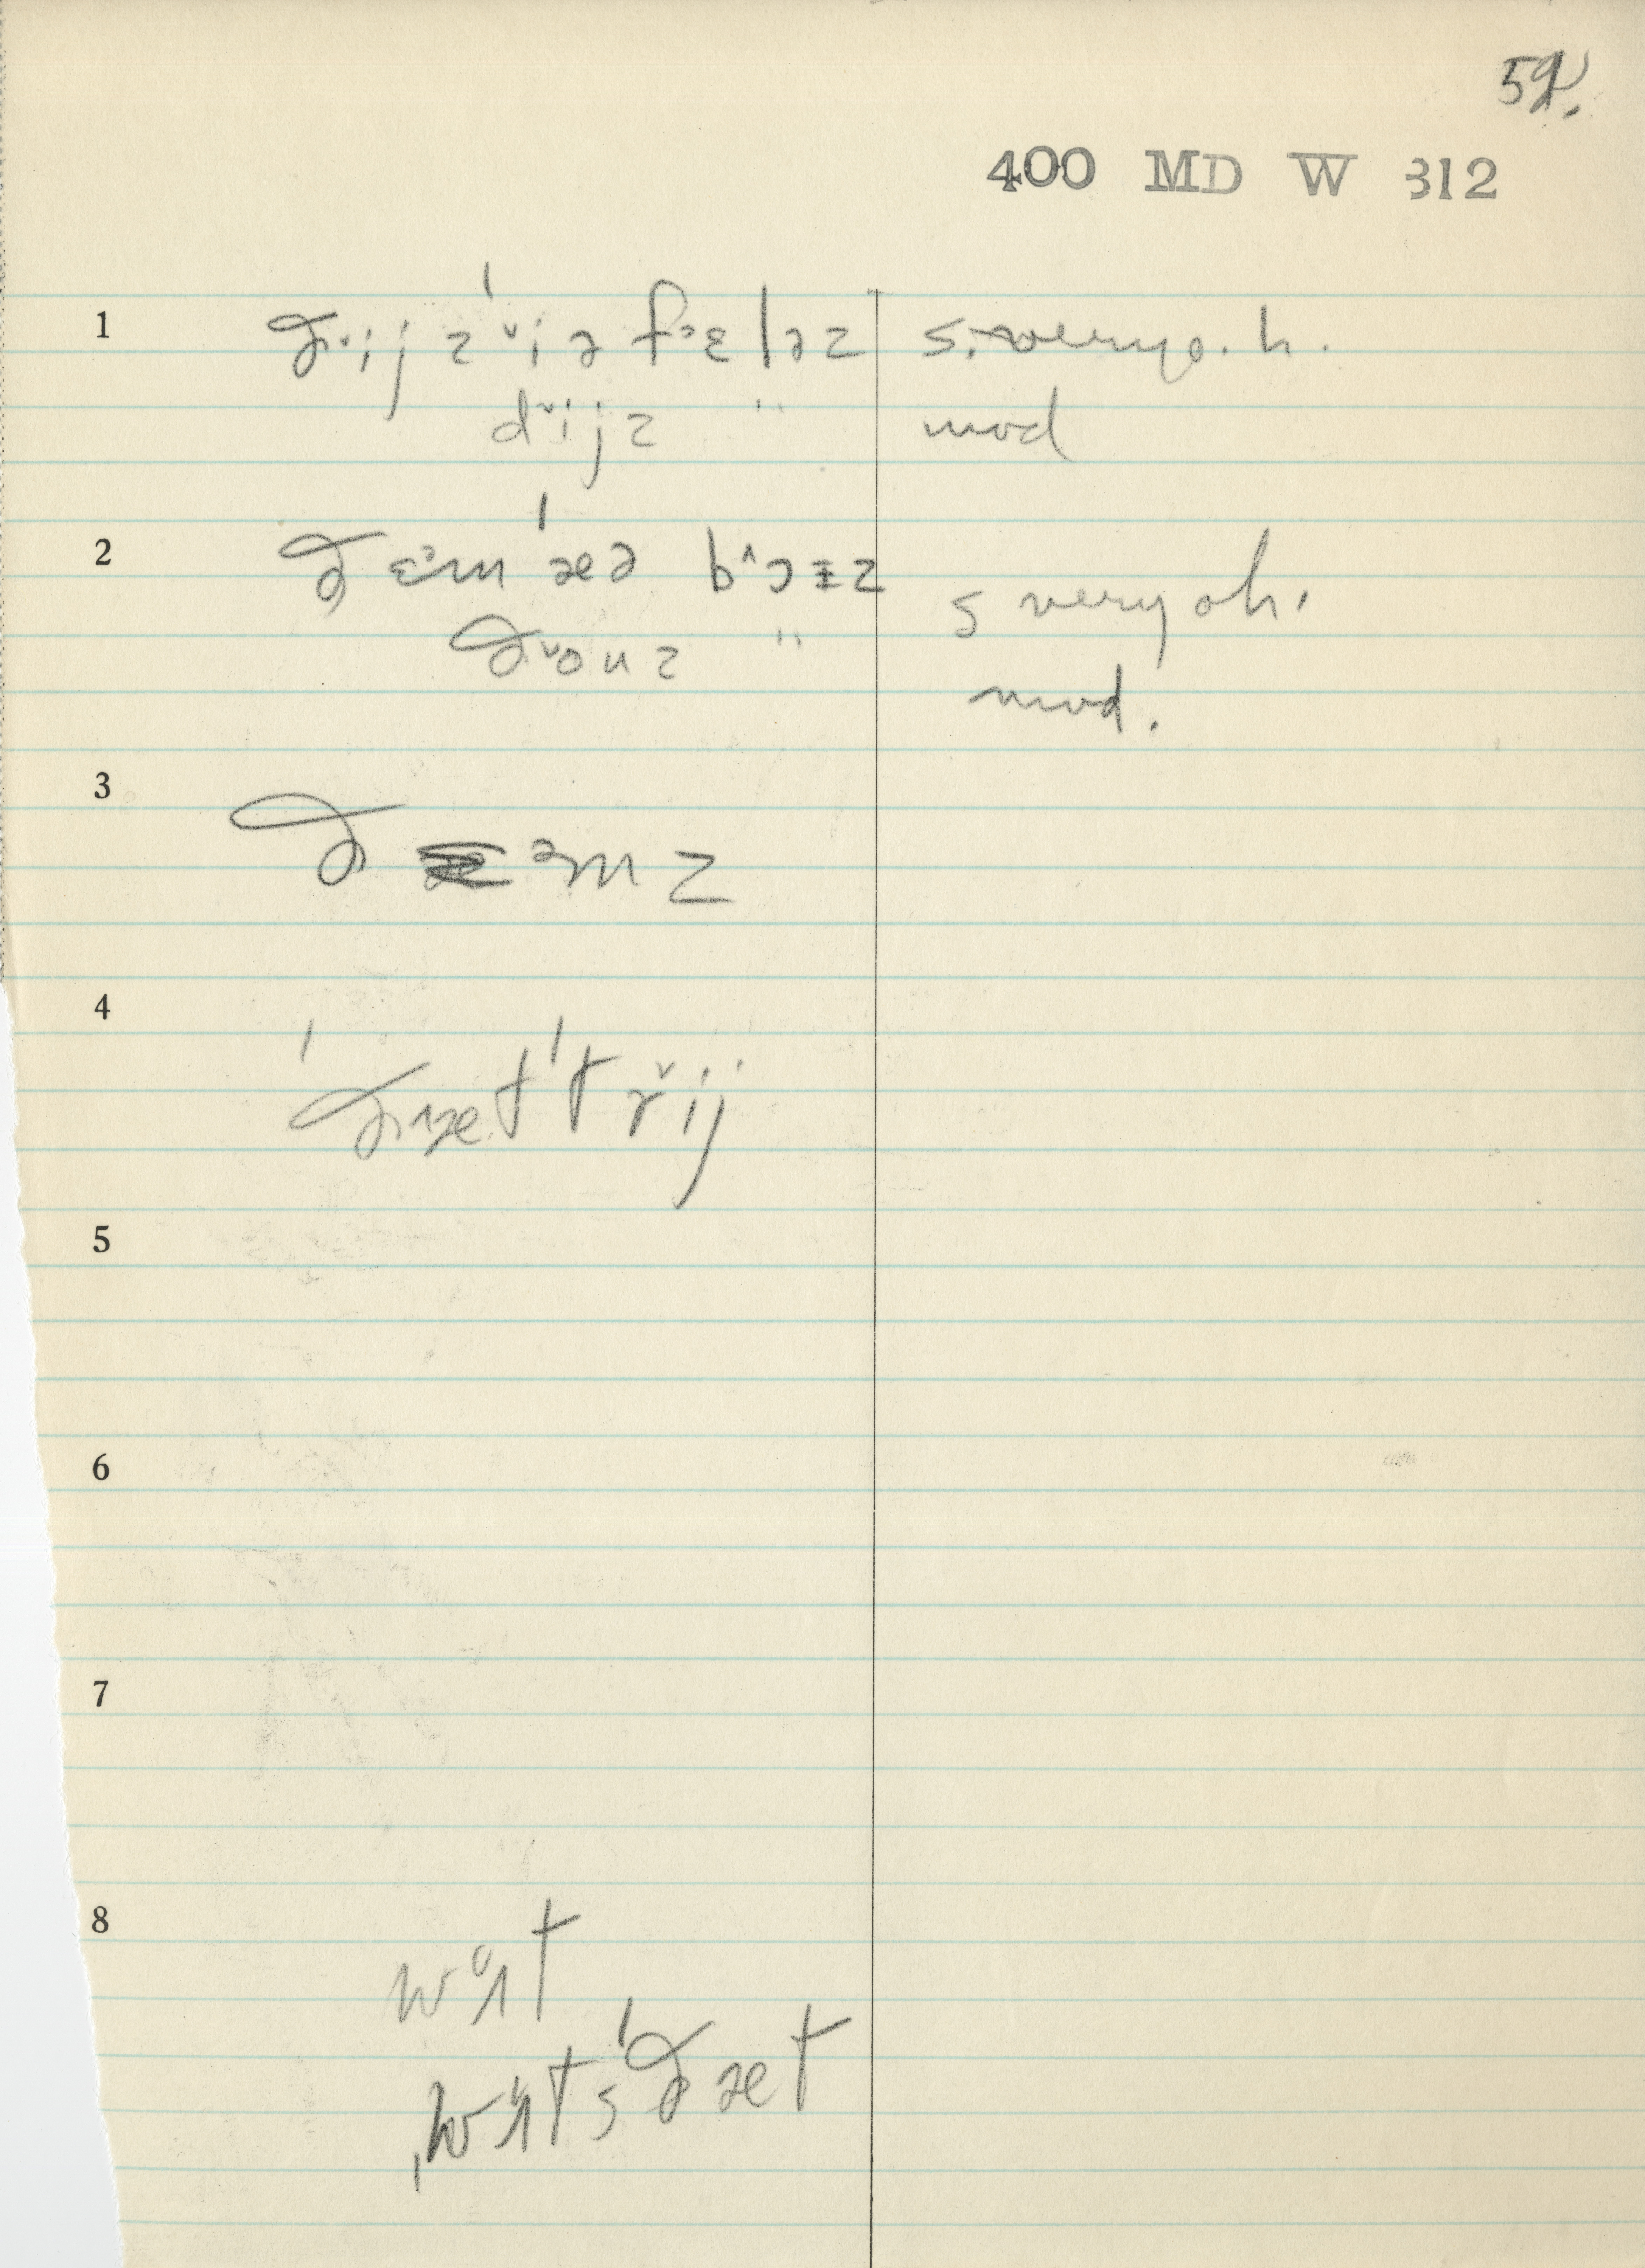 52.
400 MD W 312
1 ðˇij zˈˇiə fᵊɛləz s. very o. h.
dˇijz " mod
2 ðɛᵊm ˈæᵊə bˆɔɪz s very oh.
ðˇouz " mod.
3 ðᵊmz
4 ˈðæt ˈtrˇij
5
6
7
8 wɑt
ˌwɑtsˈðæt